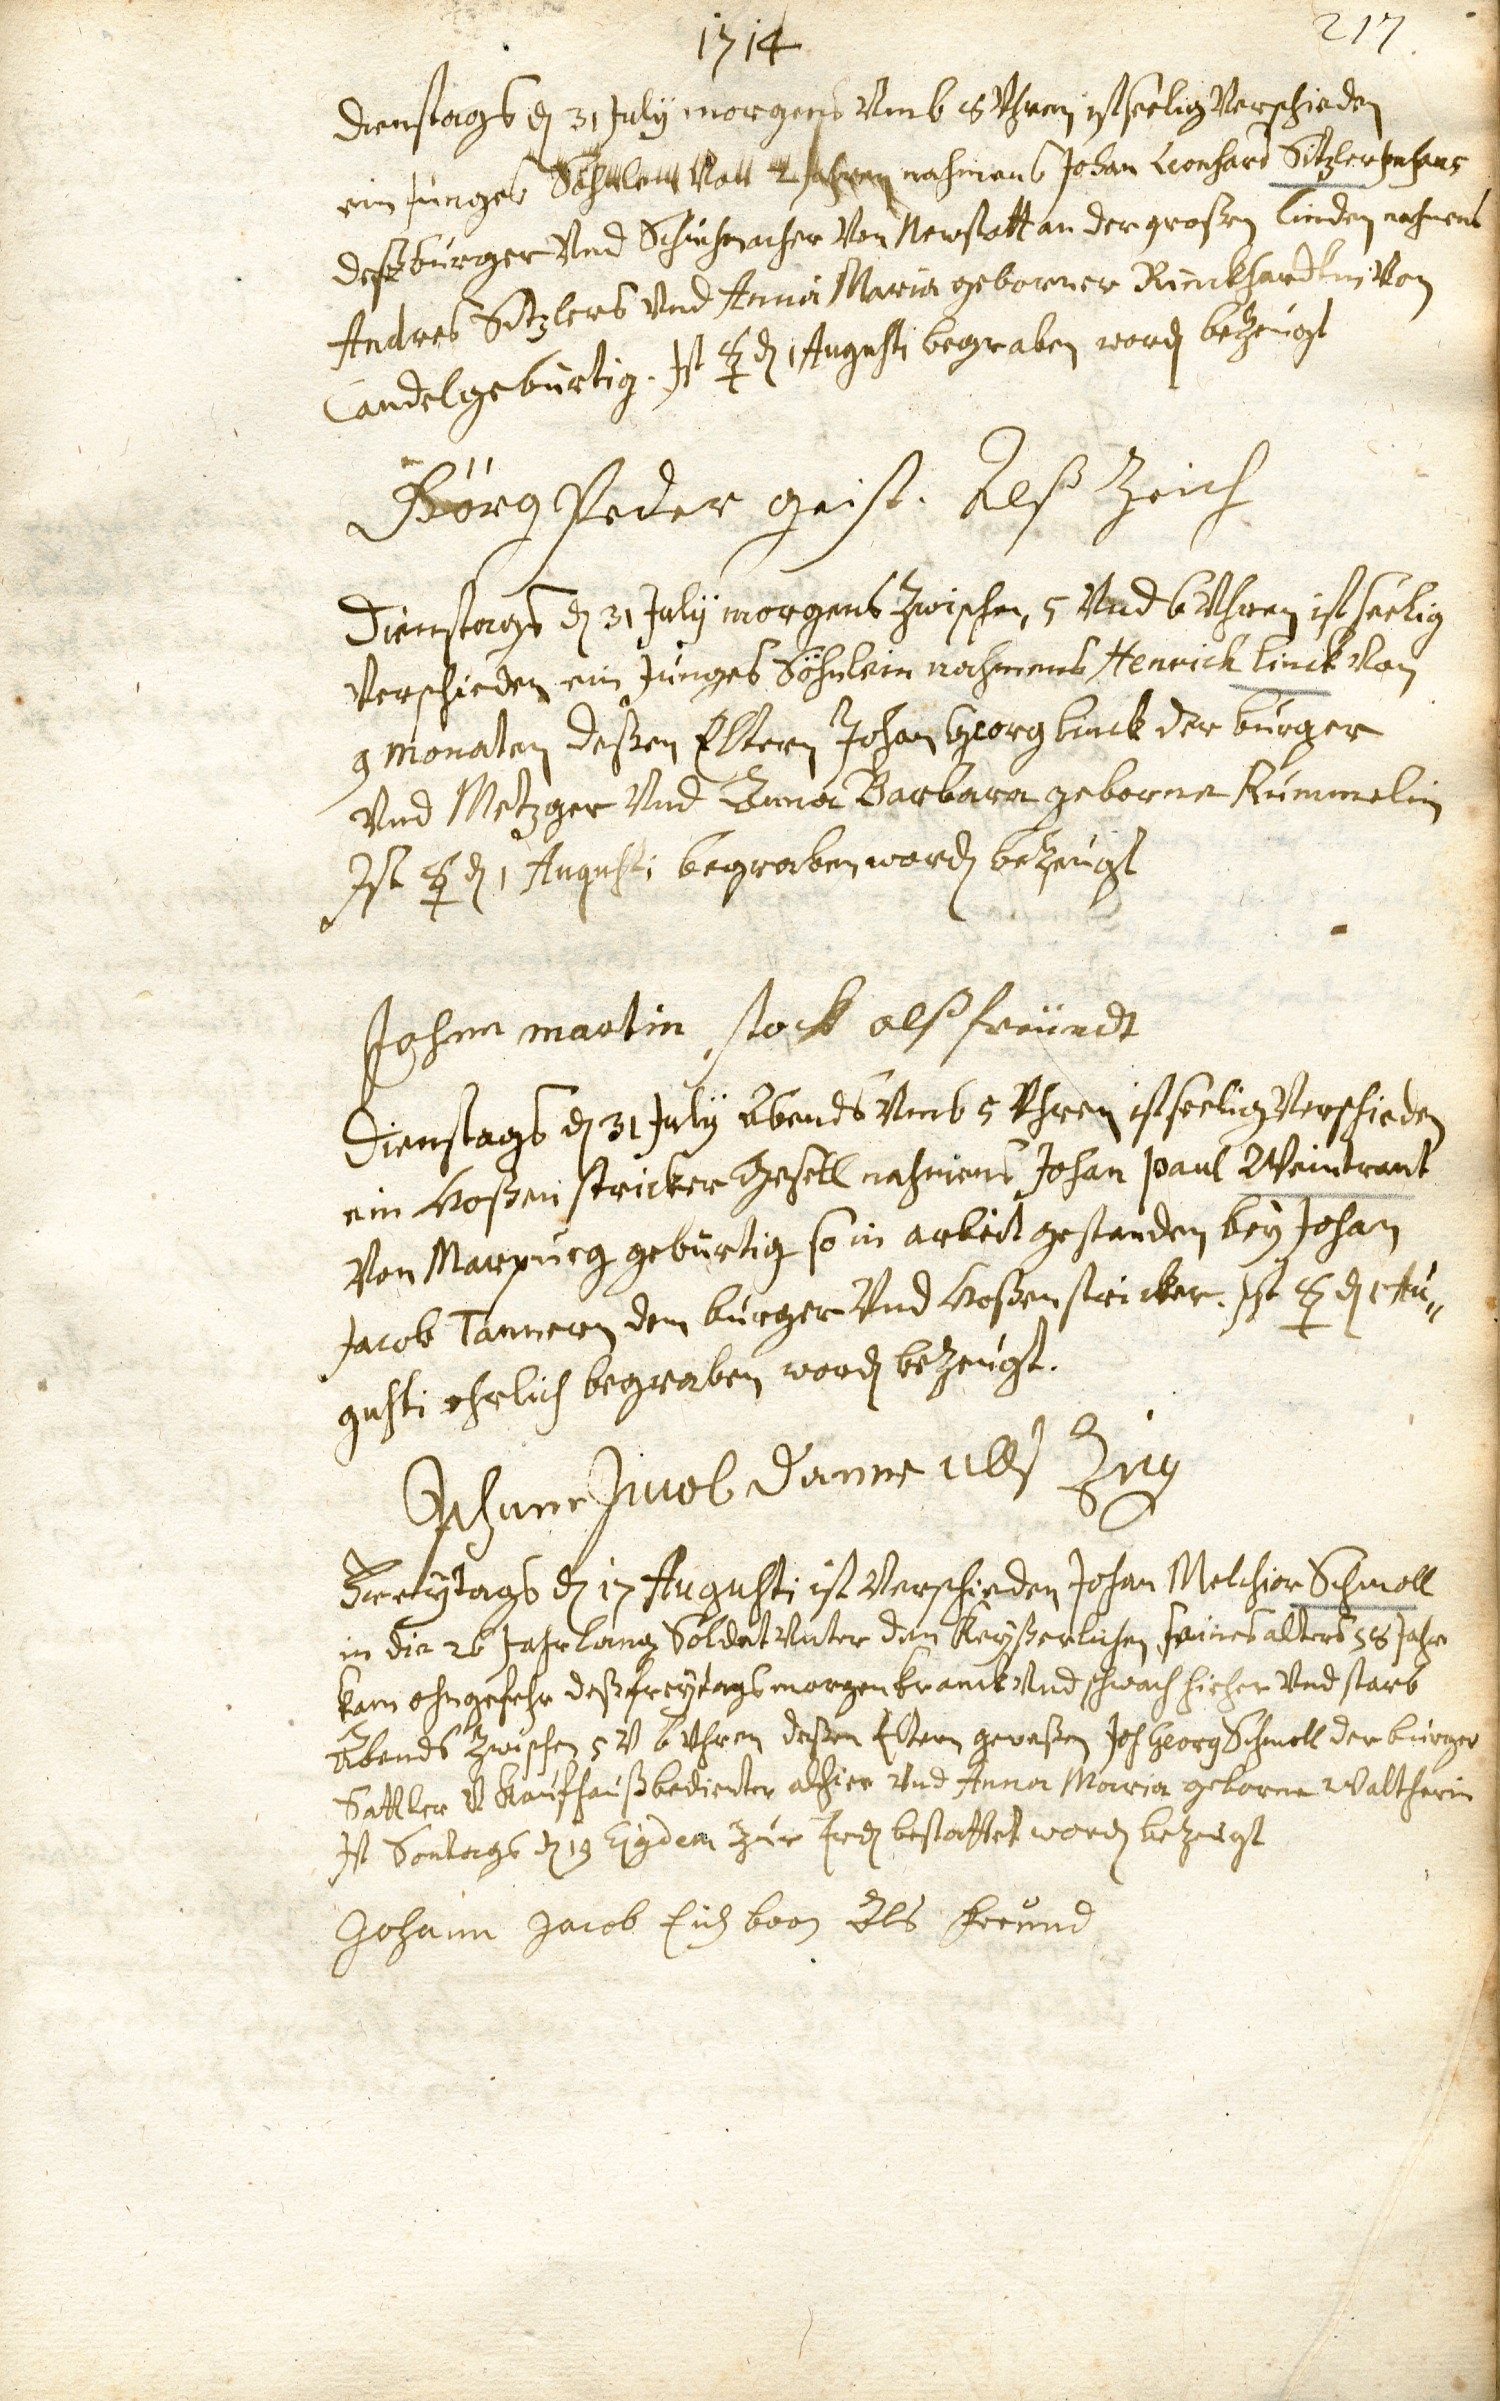 1714
217.
Dienstags d 31 July morgens Vmb 8 Vhren ist seelig Verschieden
ein Junges Söhnlein Von 4 Jahren nahmens Johan Leonhard Sitzler
deß burger Vnd Schuhmacher Von Newstatt an der großen Linden nahmens
Andres Sitzlers Vnd Anna Maria geborner Von
Candel gebürtig. Ist ☿ d 1 Augusti begraben word bezeugt
Görg Peder geist. Alß Zeich
Dienstags d 31 July morgens Zwischen 5 Vnd 6 Vhren ist seelig
Verschieden ein Junges Söhnlein nahmens Henrich Linck Von
9 Monaten deßen Eltern Johan Georg Linck der burger
Vnd Metzger Vnd Anna Barbara geborne Kümmelin
Ist ☿ d 1 Augusti begraben word bezeugt
Johan martin stock alß freündt
Dienstags d 31 July Abends Vmb 5 Vhren ist seelig Verschieden
ein Hoßenstricker Gesell nahmens Johan Paul Weintraut
Von Marpurg gebürtig so in arbeit gestanden bey Johan
Jacob Tannern dem burger Vnd Hoßenstricker. Ist ☿ d 1 Au„
gusti ehrlich begraben word bezeugt.
Johann Jacob Danner alß Zeüg
Freytags d 17 Augusti ist Verschieden Johan Melchior Schmoll
in die 26 Jahr lang Soldat Vnter den Keyßerlichen seines alters 58 Jahr
kam ohngefehr deß freytags morgen kranck Vnd schwach hieher Vnd starb
Abends Zwischen 5 V 6 Vhren deßen Eltern geweßen Joh Georg Schmoll der burger
Sattler V Kaufhaußbedienter alhier Vnd Anna Maria geborne Waltherin
Ist Sontags d 19 Ejgdem Zur Erd bestattet word bezeugt
Johann Jacob Als freund